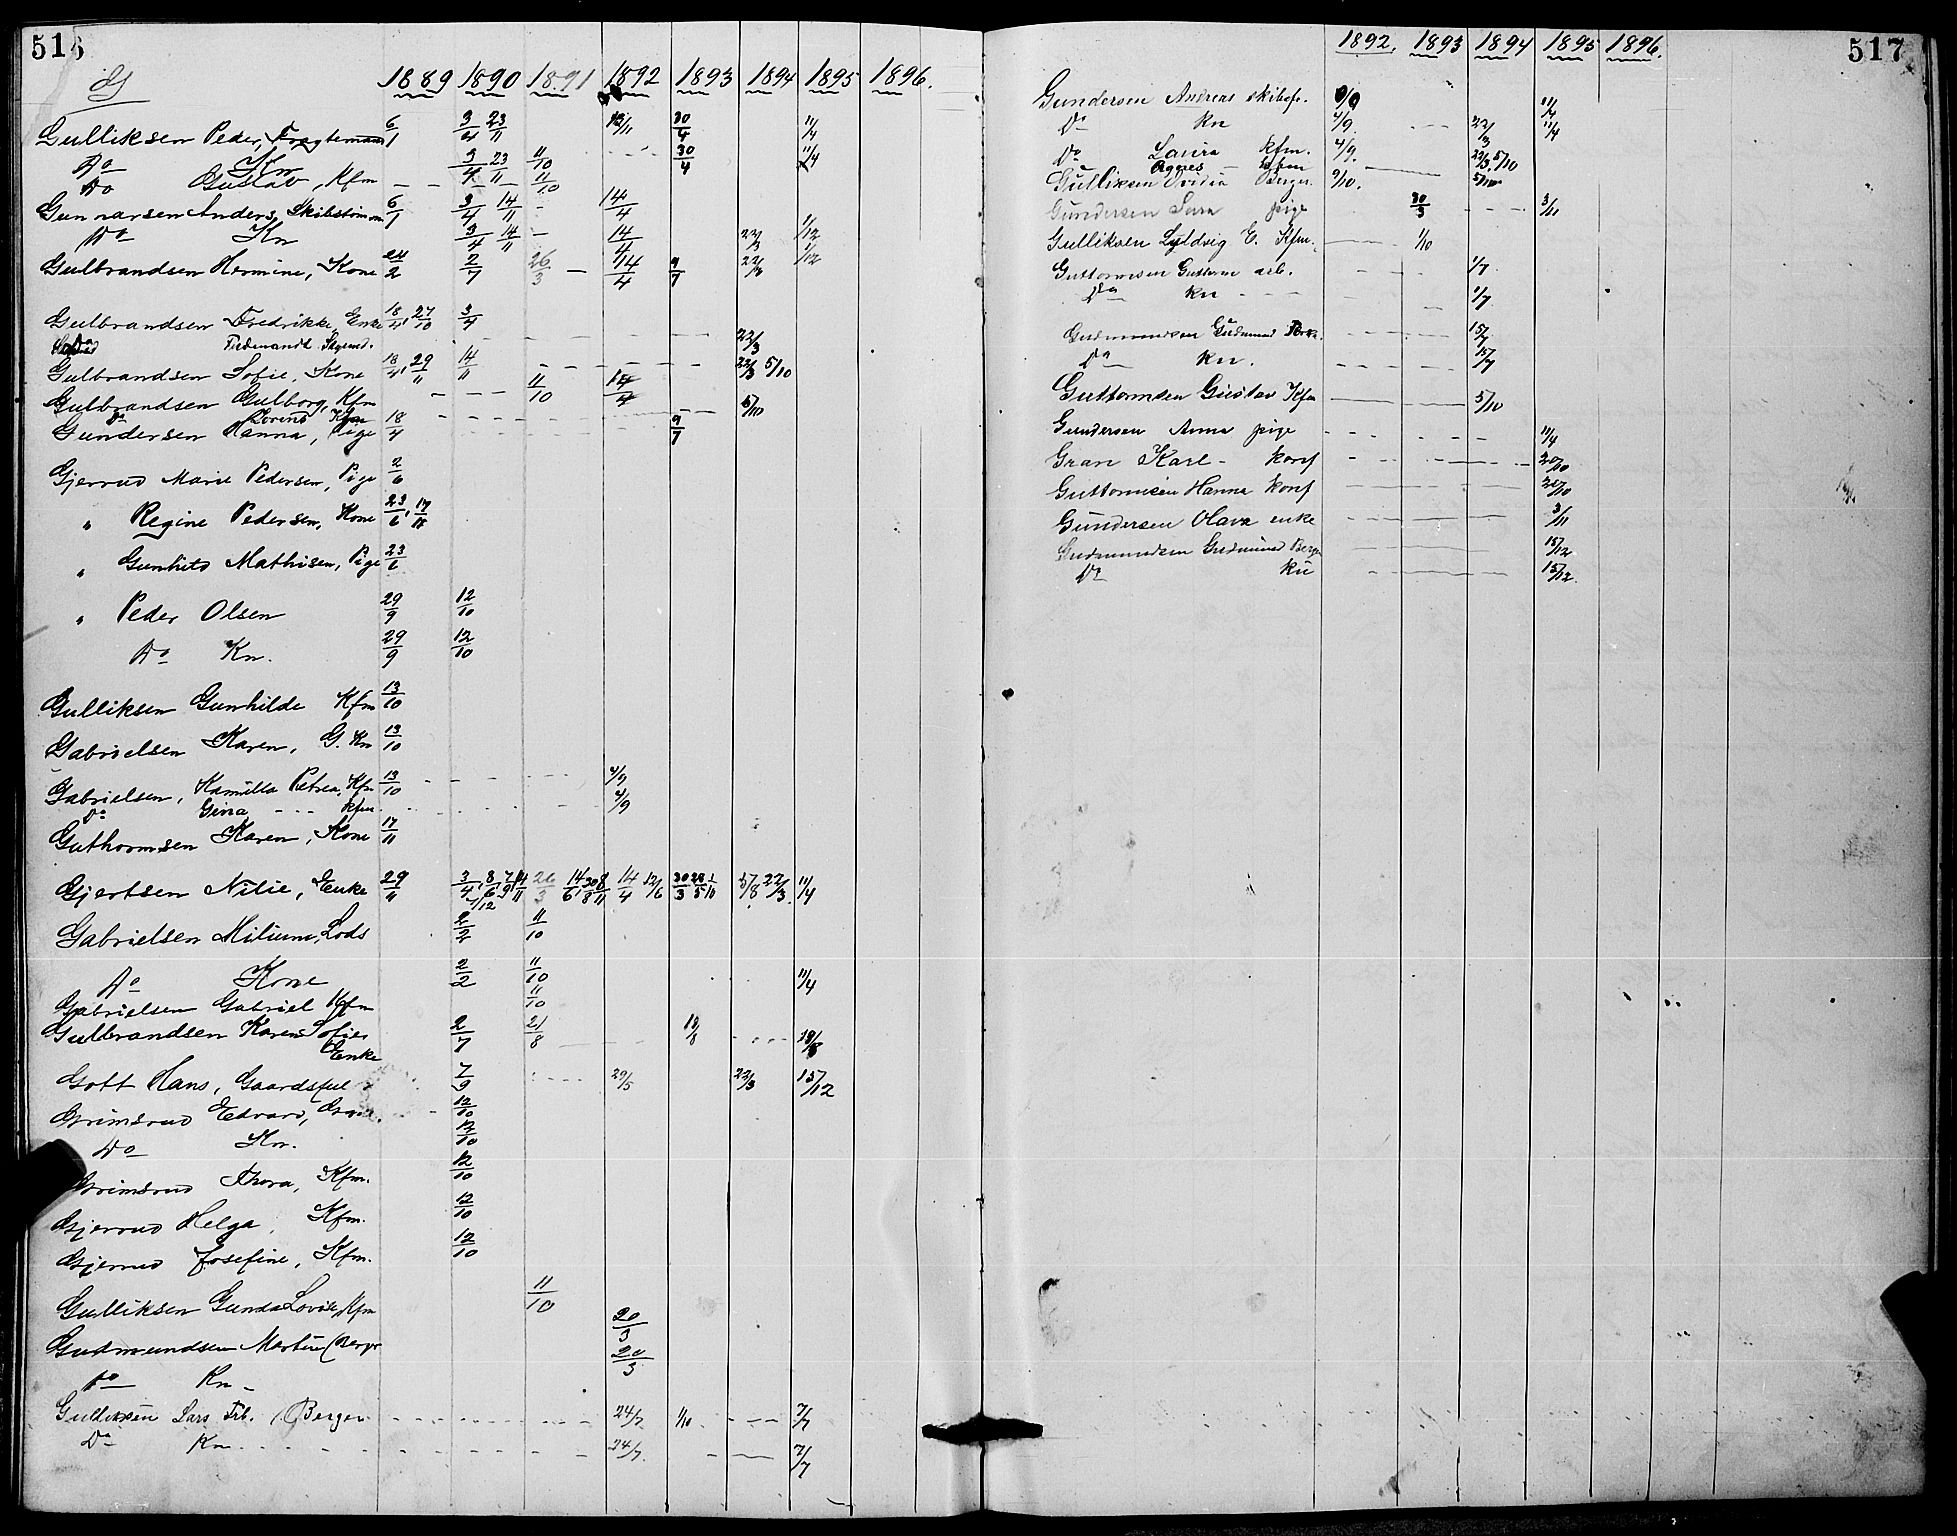 516
G
1889 1890 1891 1892 1893 1894 1895 1896.
Gulliksen Peder, Fragtemand 6/1 3/4 23/11 13/11 30/4 11/4
Do Kn 3/4 23/11 11/10 - - - 30/4 11/4
Do Gustav, Kfm - - - - 11/10
Gunnarsen Anders, Skibstømm 6/1 3/4 14/11 - 14/4
Do Kn 3/4 14/11 - 14/4 22/3 1/12
Gulbrandsen Hermine, Kone 24/2 2/7 26/3 - 14/4 9/7 22/3 1/12
Gulbrandsen Fredrikke, Enke 18/4, 27/10 3/4
Do Ferdinandt 22/3
Gulbrandsen Sofie, Kone 18/4, 29/11 14/11 22/3 5/10
Gulbrandsen Gulborg, Kfm - - - 11/10 14/4
Do Lovend 5/10
Gundersen Hanna, Pige 18/4 9/7
Gjerrud Marie Pedersen, Pige 2/6
" Regine Pedersen, Kone 23/6, 17/11
" Gunhild Mathisen, Pige 23/6
" Peder Olsen 29/9 12/10
Do Kn. 29/9 12/10
Gulliksen Gunhilde Kfm 13/10
Gabrielsen Karen, G. Kn 13/10
Gabrielsen, Kamilla Petrea, Kfm 13/10 - - - - - 4/9
Do Gina - - - Kfm. 4/9
Guthormsen Karen, Kone 17/11
Gjertsen Nilie, Enke 29/11 3/4, 8/6 7/9 14/11 7/12 26/3 14/6, 30/8 8/11 14/4 12/6 30/3 28/5 1/11 5/8 22/3 11/4
Gabrielsen Milium, Lods 2/2 11/10
Do Kone 2/2 11/10 11/4
Gabrielsen Gabriel Kfm 11/10
Gulbrandsen Karen Sofie, 2/7 21/8 18/8 - - - 18/8
Enke
Gott Hans, Gaardsful 7/9 - - - - 29/5 22/3 15/12
Grimsrud Edvard, 12/10
Do Kn. 12/10
Grimsrud Thora, Kfm. 12/10
Gjerrud Helga, Kfm. 12/10
Gjerrud Josefine, Kfm. 12/10
Gulliksen Gunda Lovise, Kfm 11/10
Gudmundsen Martin (Berger 20/3
Do Kn - 20/3
Gulliksen Lars Frb. (Berger 24/7 1/10 - - - 7/7
Do Kn 24/7 7/7
517
1892. 1893 1894 1895 1896.
Gundersen Andreas skibsf. 9/9 11/4
Do kn 4/9 - - - 22/3 11/4
Do Laura kfm. 4/9. 22/3 5/10
Agnes 5/10
Gulliksen Ovidia Berger 9/10.
Gundersen Lura pige 30/3 - - - 3/11
Gulliksen Lydvig E. Kfm. 1/10
Guttormsen Guttorm arb. - - - 1/7
Do kn - - - 1/7
Gudmundsen Gudmund 15/7
Do kn. 15/7
Guttormsen Gustav Kfm 5/10
Gundersen Anna pige 11/4
Gran Karl - konf 20/10
Guttormsen Hanna konf 20/10
Gundersen Olava enke 3/11
Gudmundsen Gudmund Berger 15/12
Do kn 15/12.